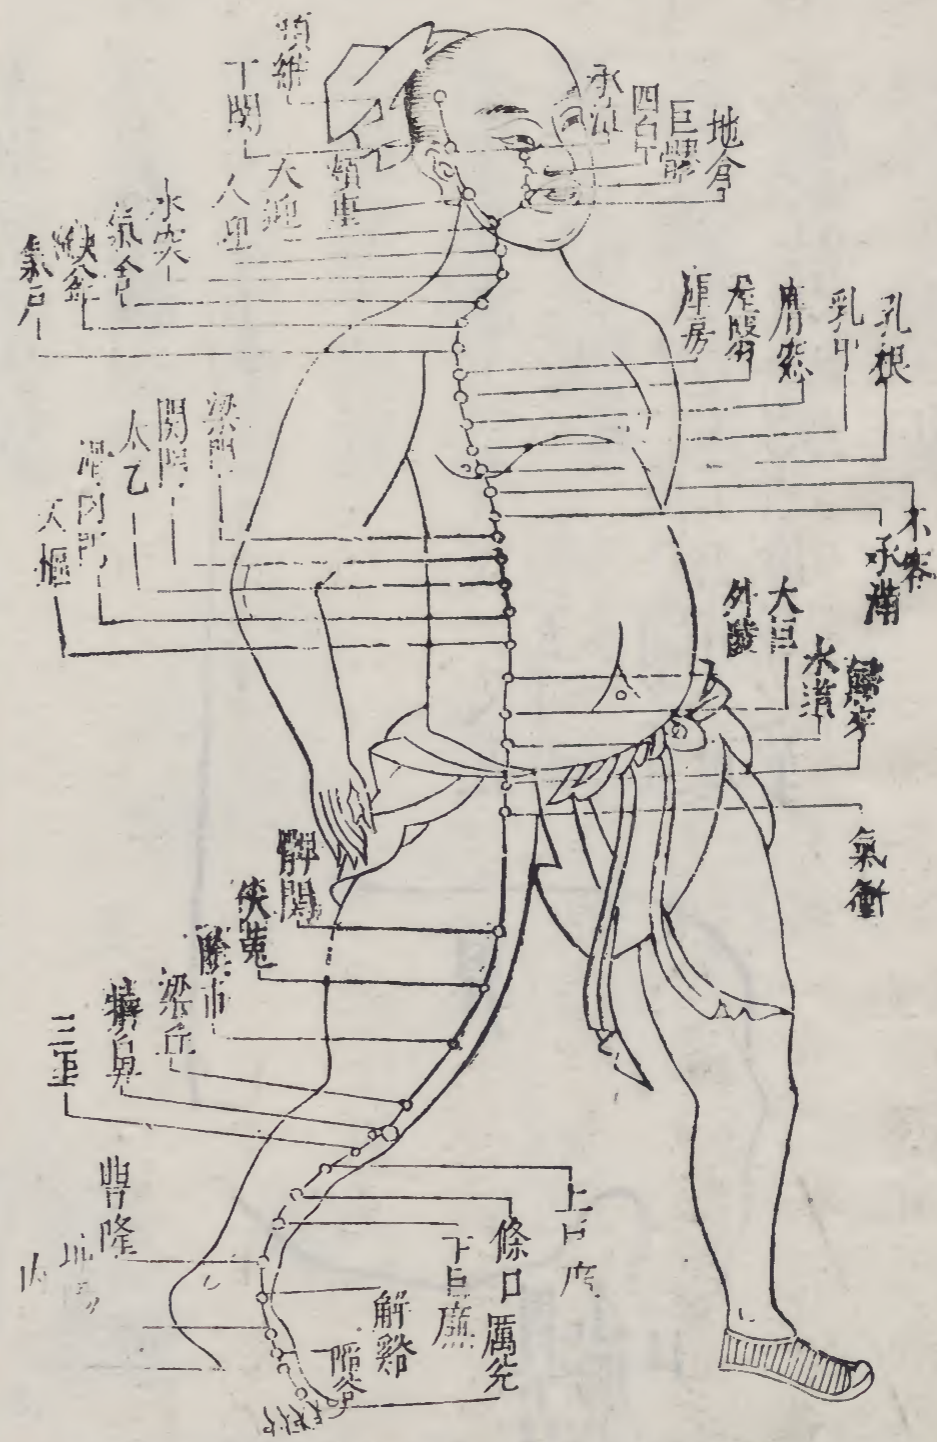 頭維
下關
頰車
大迎
人迎
水突
氣舍
缺盆
氣戶
承泣
四白
巨髎
地倉
庫房
屋翳
膺窓
乳中
乳根
梁門
關門
太乙
滑肉門
天樞
不容
承滿
外陵
大巨
水道
歸來
氣衝
髀關
伏兎
陰市
梁丘
犢鼻
三里
上巨虛
條口
下巨廉
豊隆
解谿
陷谷
厲兌